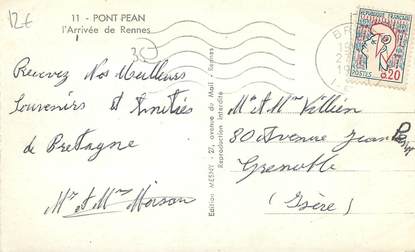 12€
11 - PONT PEAN
l'Arrivée de Rennes
30
Recevez Nos Meilleurs
Souvenirs et Amitiés
de Bretagne
Mr et Mme Moison
Edition MESNY - 27, avenue du Mail - Rennes
Reproduction Interdite
REPUBLIQUE FRANÇAISE
POSTES 0,20
Mr et Mme Villien
80 Avenue Jean
Grenoble
(Isère)